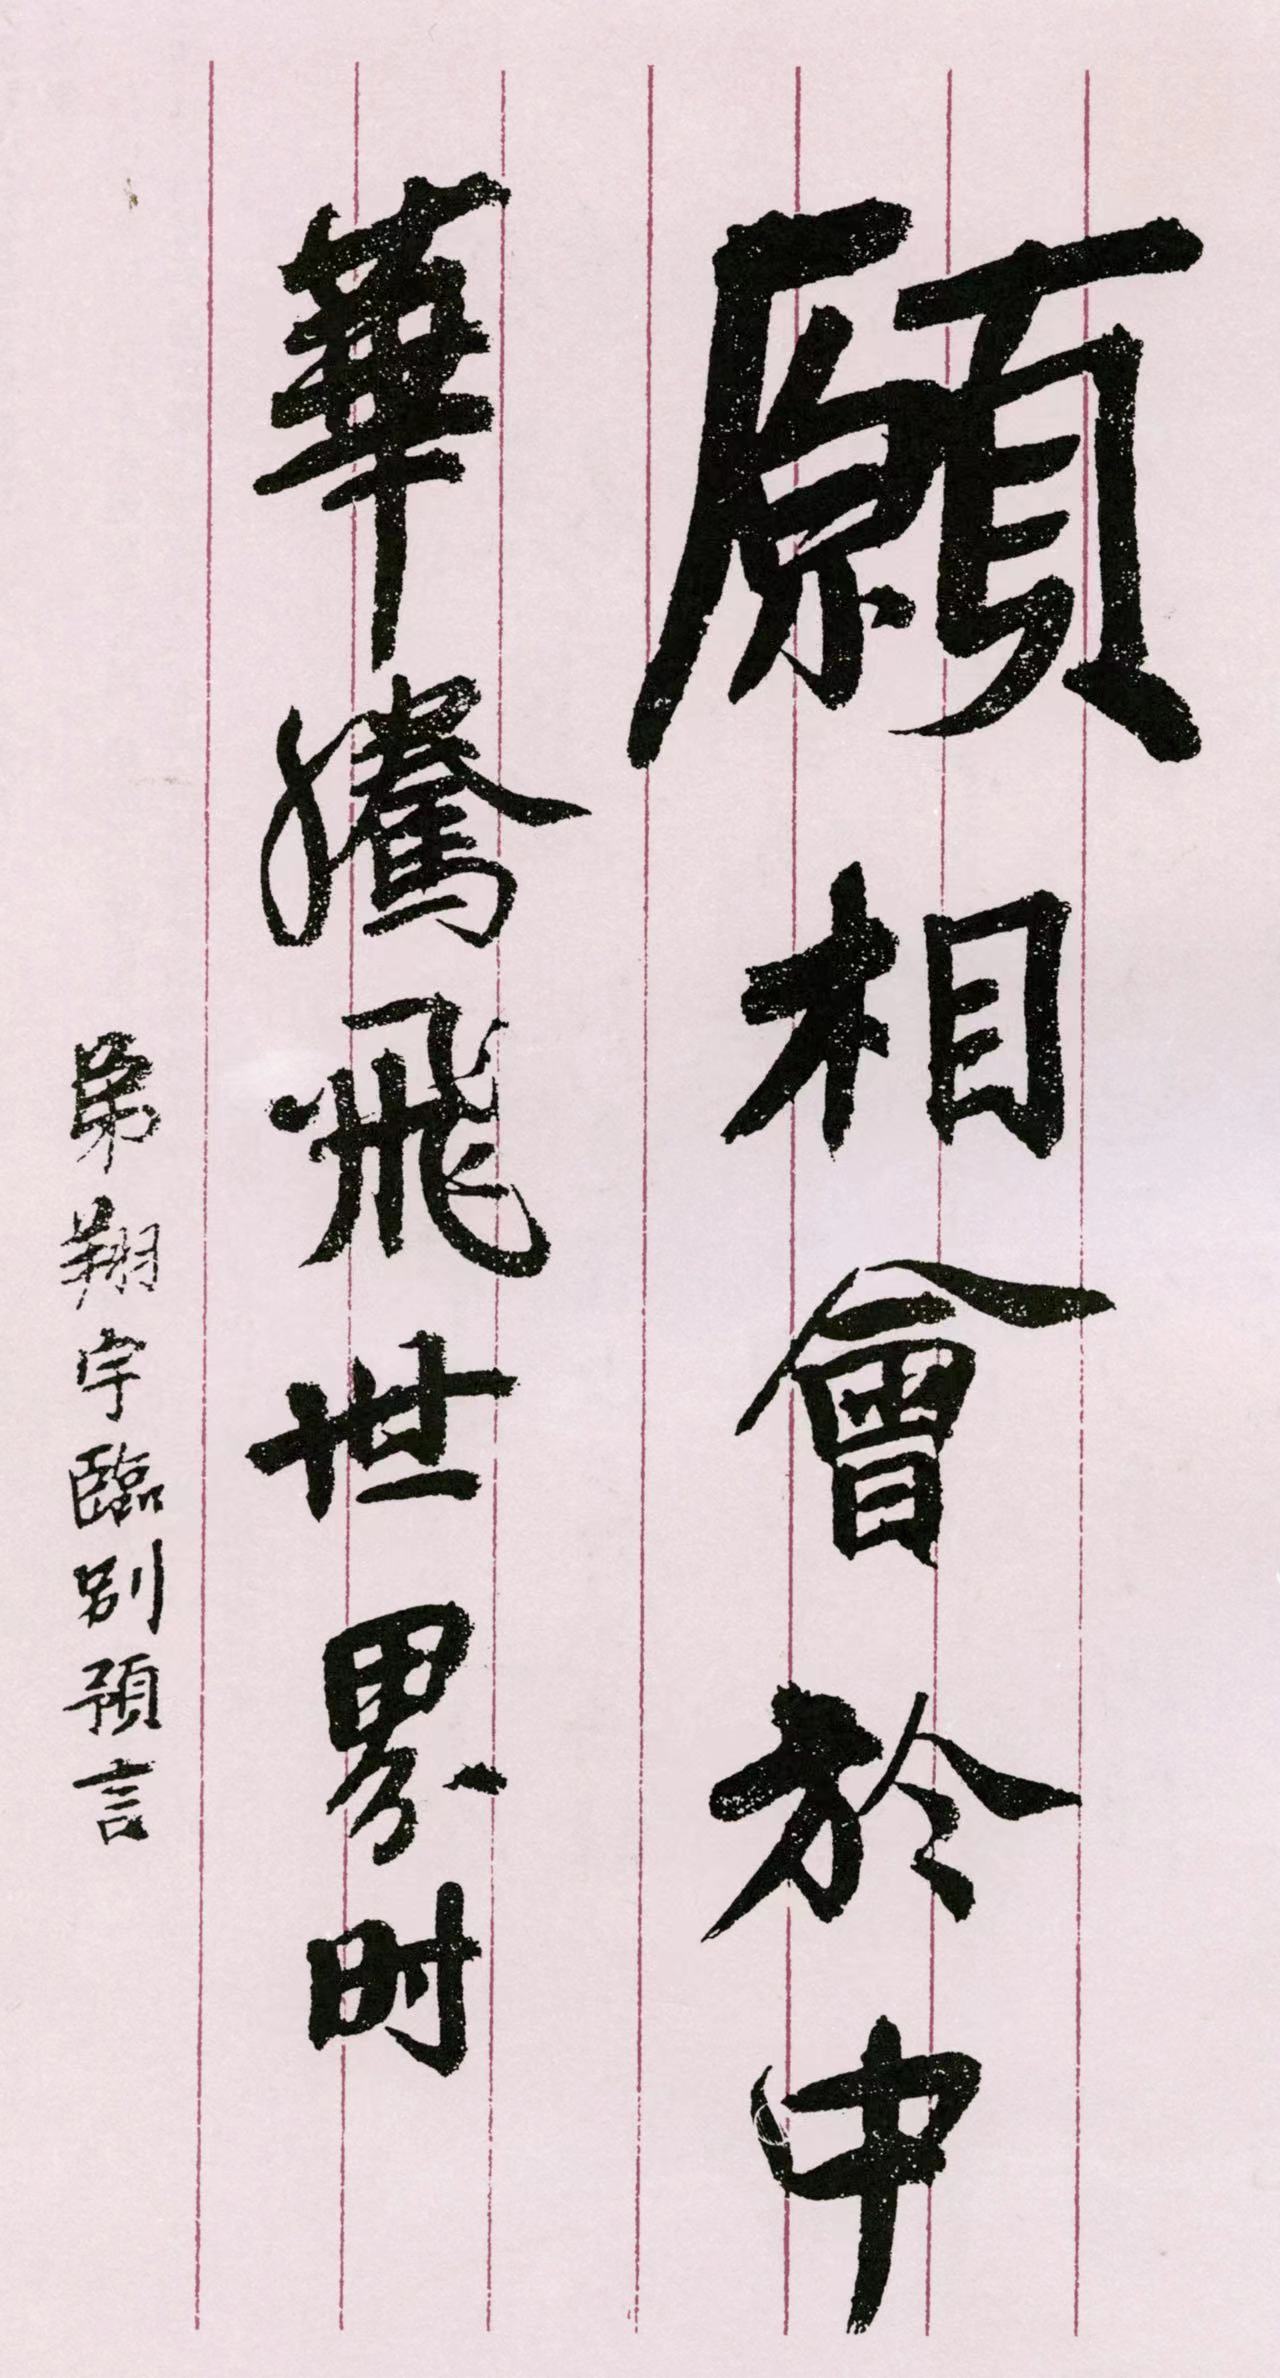 願相會於中
華騰飛世界时
弟翔宇臨別預言